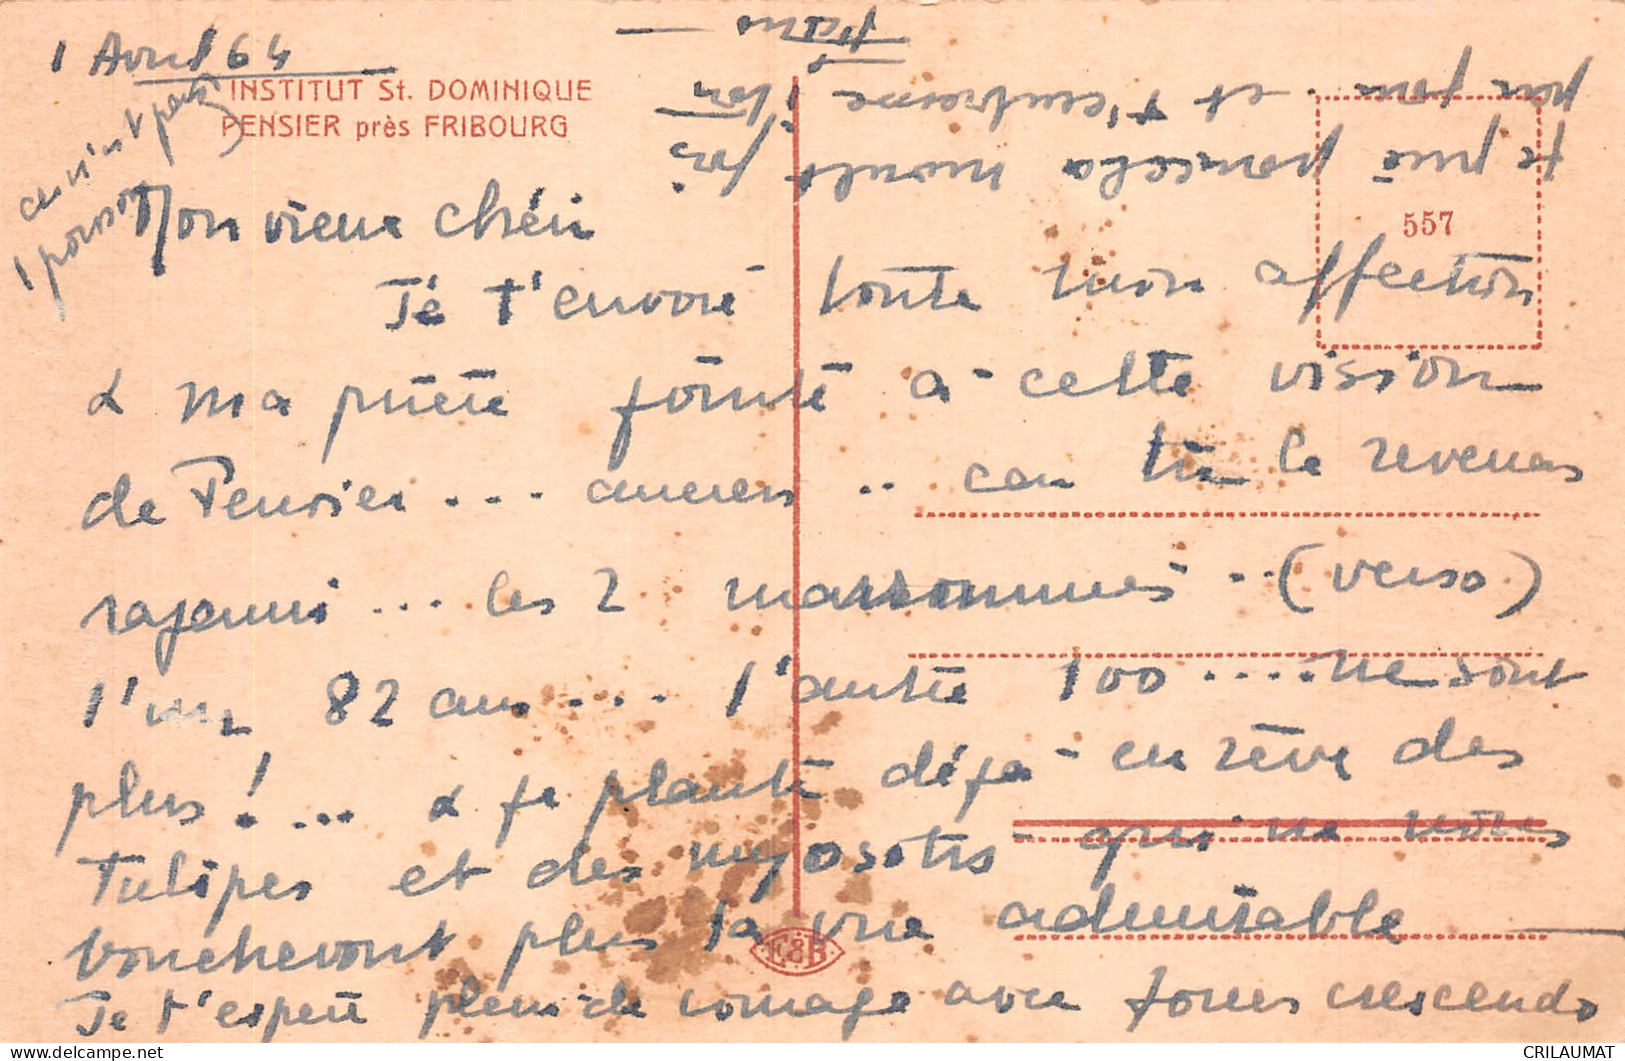 1 Avril 64
INSTITUT St. DOMINIQUE
PENSIER près FRIBOURG
ce n'est pas
1 poisson
557
Mon vieux chéri
Je t'envoie toute mon affection
& ma prière jointe à cette vision
de Février ... ancien .. car tu le reverras
rajeuni ... les 2 marronniers .. (verso)
l'un 82 ans ... l'autre 100 .... ne sont
plus ! ... & je plante déjà en rêve des
Tulipes et des myosotis qui ne nous
boucheront plus la vue admirable
Je t'espère plein de courage avec forces crescendo
E&B
je prie pour cela moult fois
par jour . et t'embrasse
ton
CRILAUMAT